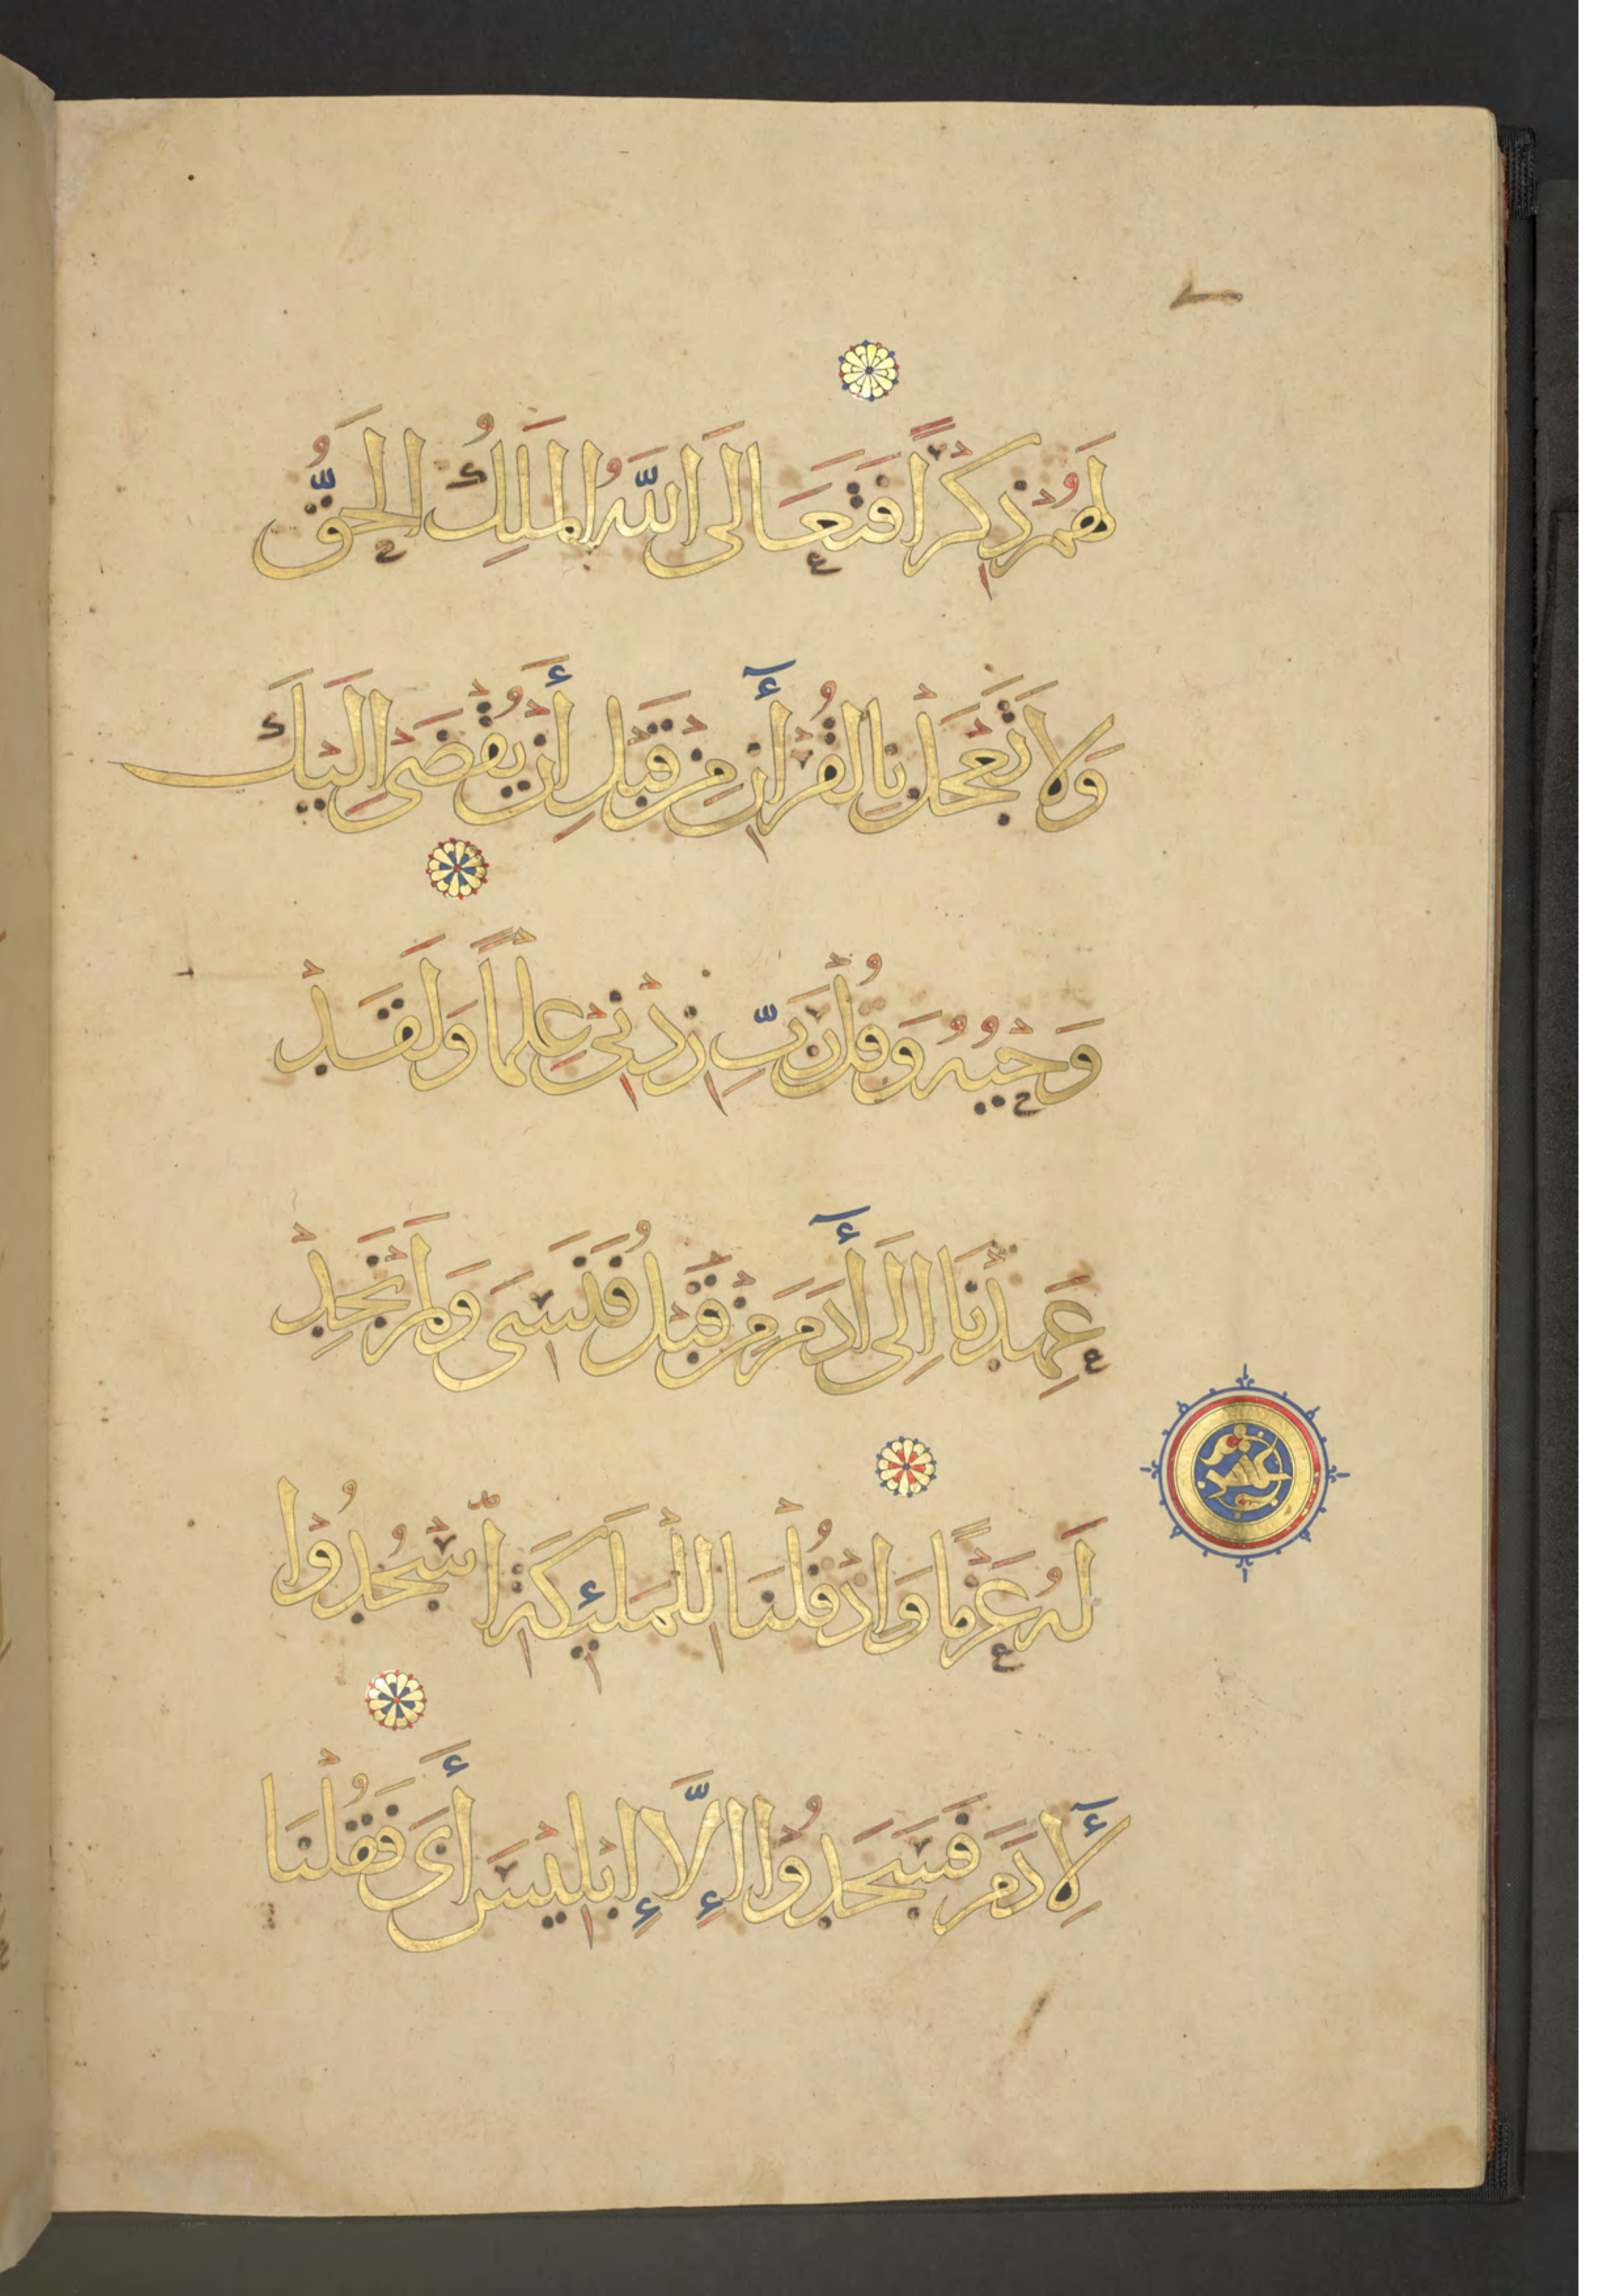 لَهُمْ ذِكْرًا فَتَعَالَى اللَّهُ الْمَلِكُ الْحَقُّ
وَلَا تَعْجَلْ بِالْقُرْأٓنِ مِنْ قَبْلِ أَنْ يُقْضَى إِلَيْكَ
وَحْيُهُ وَقُلْ رَبِّ زِدْنِي عِلْمًا وَلَقَدْ
عَهِدْنَا إِلَى أٓدَمَ مِنْ قَبْلُ فَنَسِىَ وَلَمْ نَجِدْ
لَهُ عَزْمًا وَاِذْ قُلْنَا لِلْمَلَئِكَةِ اسْجُدُوْا
لِأٓدَمَ فَسَجَدُوْا إِلَّا إِبْلِيسَ أَبَى فَقُلْنَا
عشر